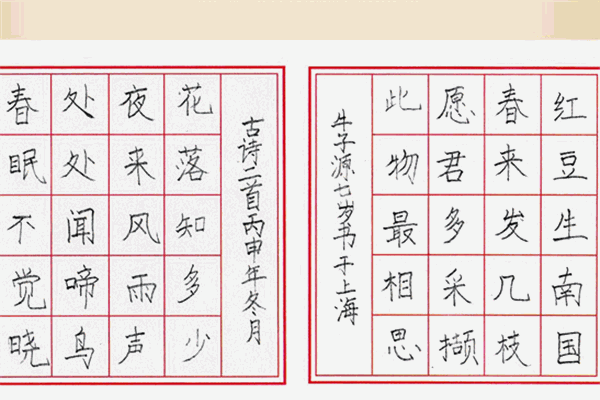 春眠不觉晓
处处闻啼鸟
夜来风雨声
花落知多少
古诗二首丙申年冬月
红豆生南国
春来发几枝
愿君多采撷
此物最相思
牛子源七岁书于上海